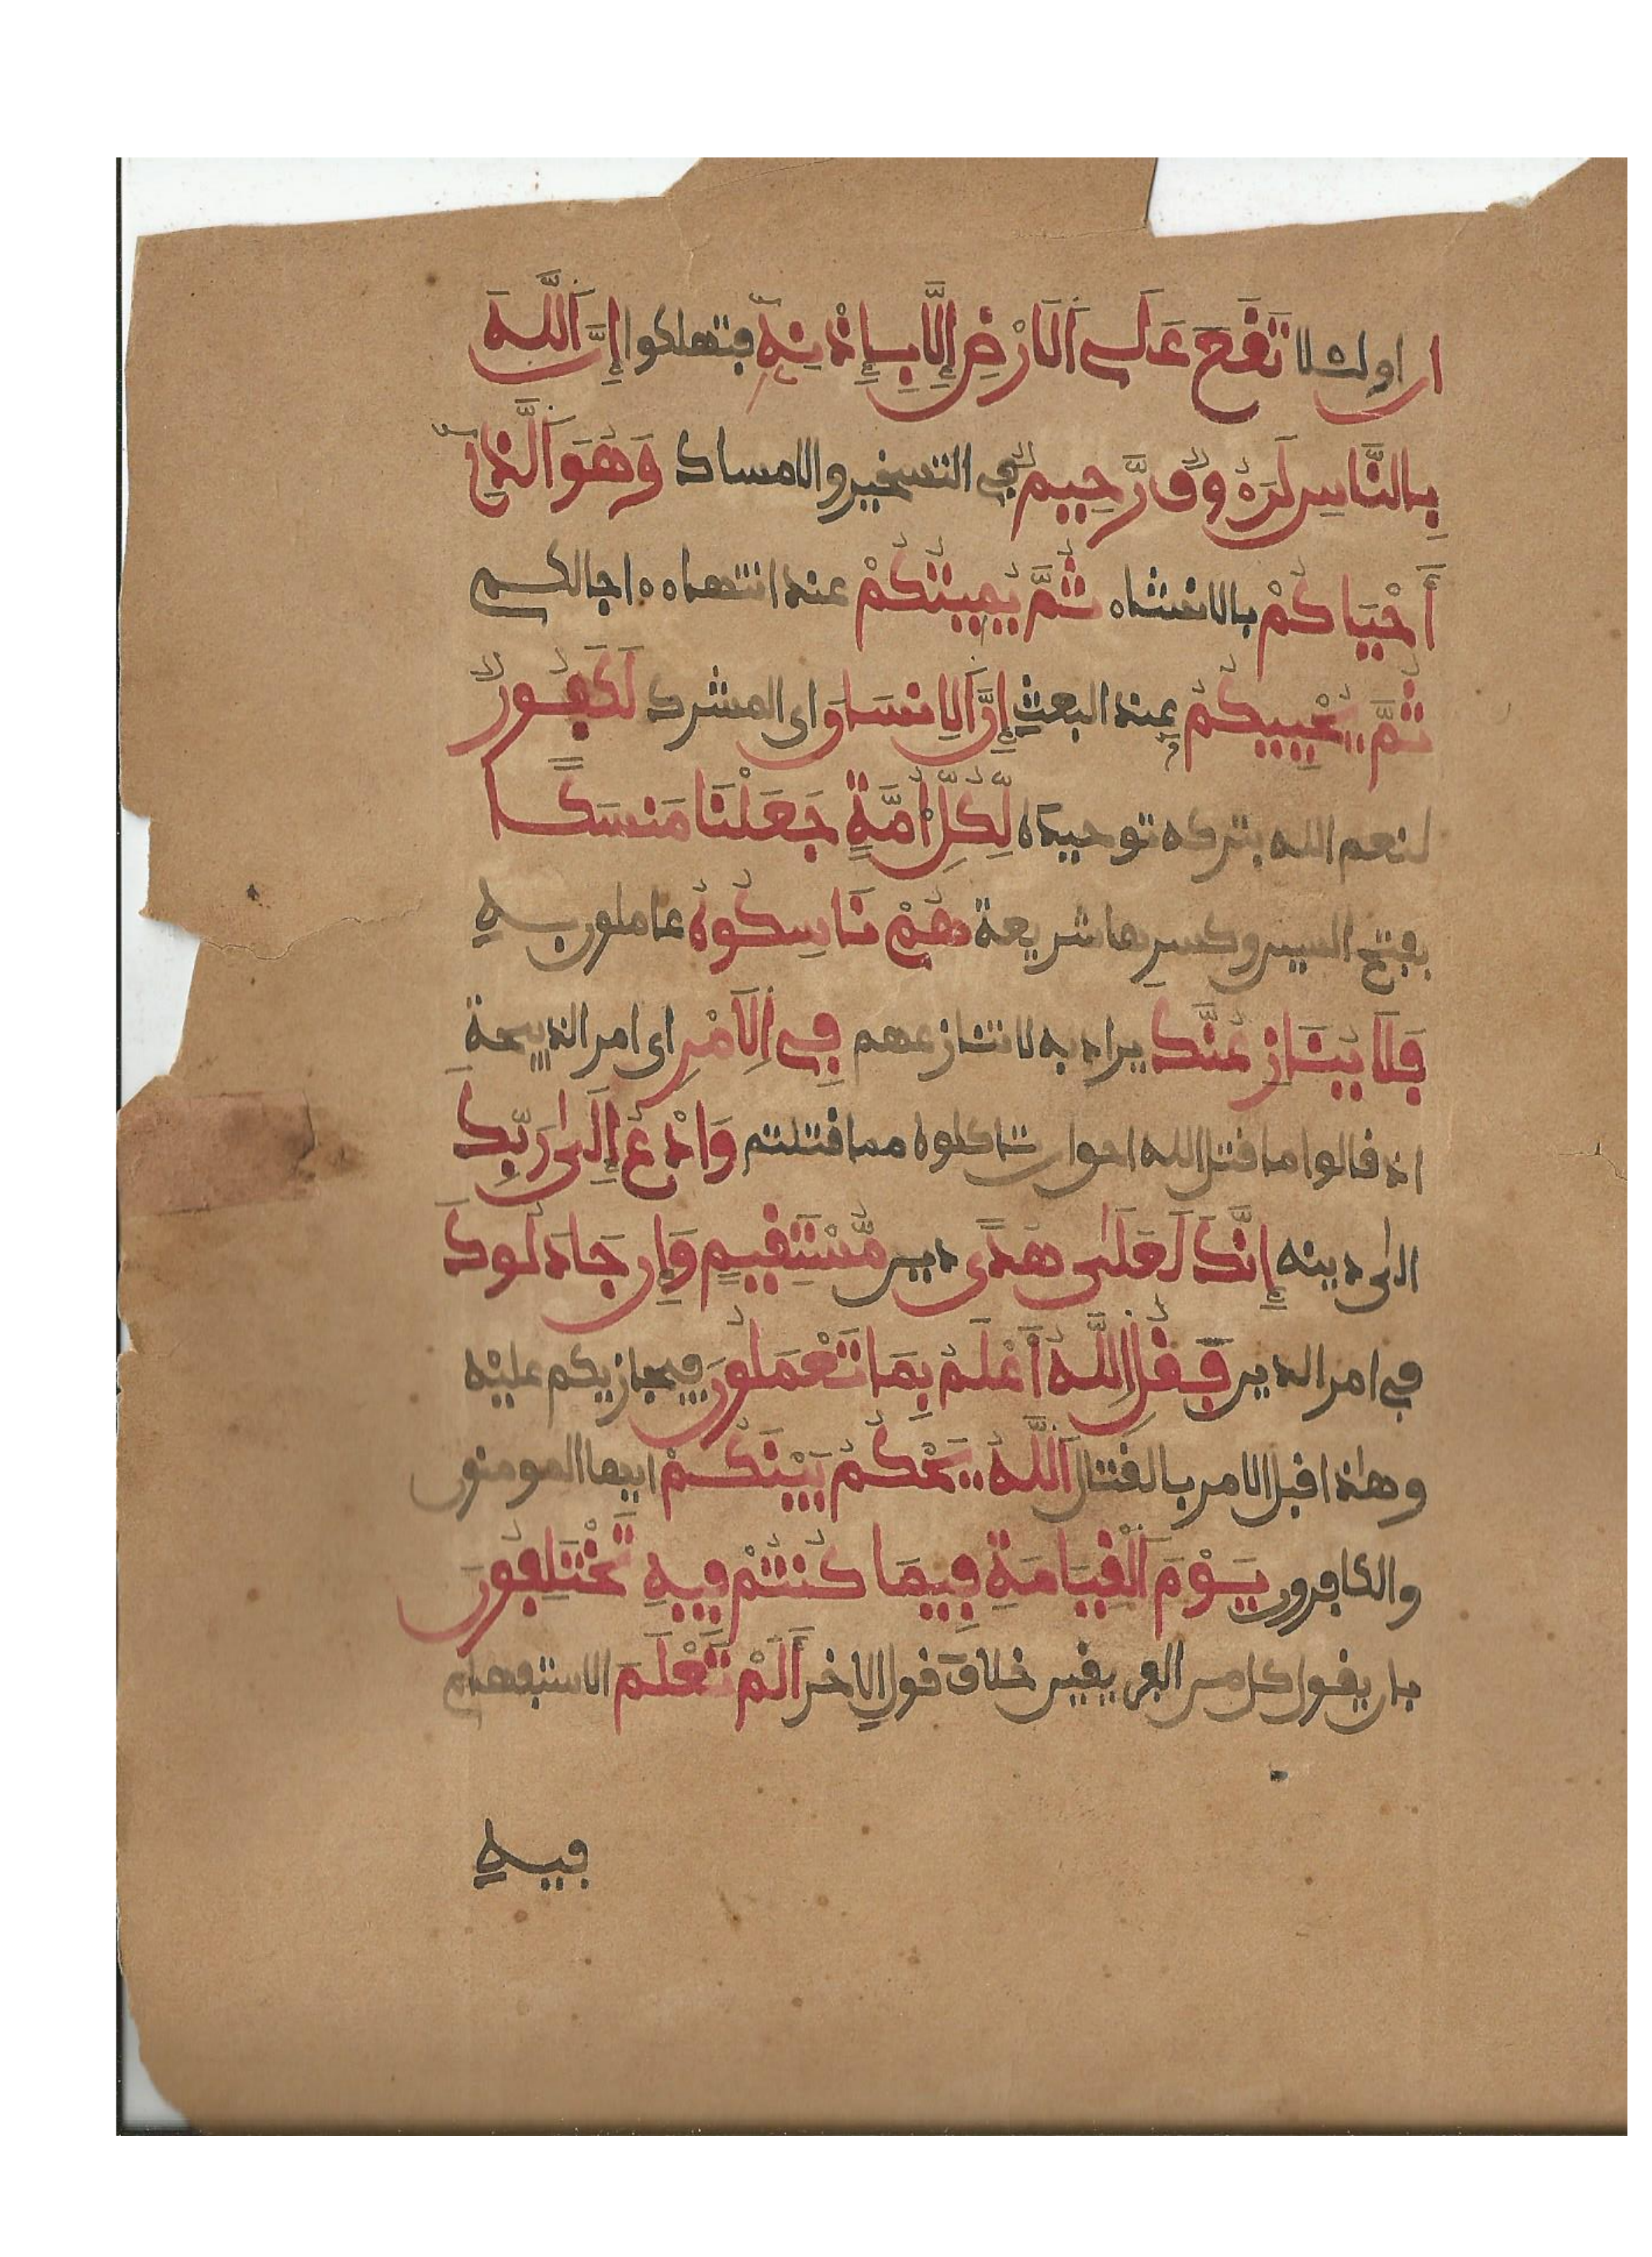 ان او لئلا تَقَعَ عَلَى اَلَارْضِ إِلَّا بِإِذْنِهِ فتهلكوا إِنَّ اَللَّهَ
بِالنَّاسِ لَرَءُوفٌ رَّحِيمٌ في التسخير والامساك وَهُوَ اَلَّذِے
أَحْيَاكُمْ بالانشاء ثُمَّ يُمِيتُكُمْ عند انتهاء اجالكم
ثُمَّ يُحْيِيكُمُ عند البعث إِنَّ اَلِانسَانَ اى المشرك لَكَفُورٌ
لنعم الله بتركه توحيده لِّكُلِّ أُمَّةٍ جَعَلْنَا مَنسَكاً
بفتح السين وكسرها شريعة هُمْ نَاسِكُوهُ عاملون به
فَلَا يُنَازِعُنَّكَ يراد به لا تنازعهم فِے اِلَامْرِ اى امر الذبيحة
اذ قالوا ما قتل الله احق ان تاكلوه مما قتلتم وَادْعُ إِلَىٰ رَبِّكَ
الى دينه إِنَّكَ لَعَلَىٰ هُدًى دين مُّسْتَقِيمٍ وَإِن جَادَلُوكَ
في امر الدين فَقُلِ اِللَّهُ أَعْلَمُ بِمَا تَعْمَلُونَ فيجازيكم عليه
وهذا قبل الامر بالقتال اَللَّهُ يَحْكُمُ بَيْنَكُمْ ايها المومنون
والكافرون يَوْمَ اَلْقِيَامَةِ فِيمَا كُنتُمْ فِيهِ تَخْتَلِفُونَ
بان يقول كل من الفريقين خلاف قول الاخر أَلَمْ تَعْلَمَ الاستفهام
فيه